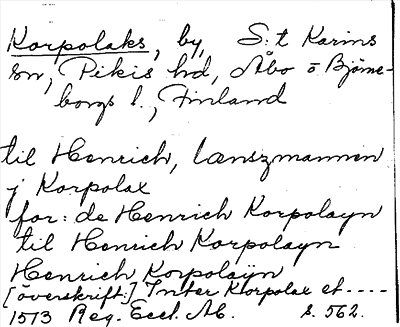 Korpolaks, by, S:t Karins
sn, Pikis hd, Åbo o Björne-
borgs l., Finland
til Henrich, Lænszmannen
j Korpolax
for: de Henrich Korpolayn
til Henrich Korpolayn
Henrich Korpolaÿn
[överskrift:] Inter Korpolax et ----
1513 Reg. Eccl. Ab. s. 562.